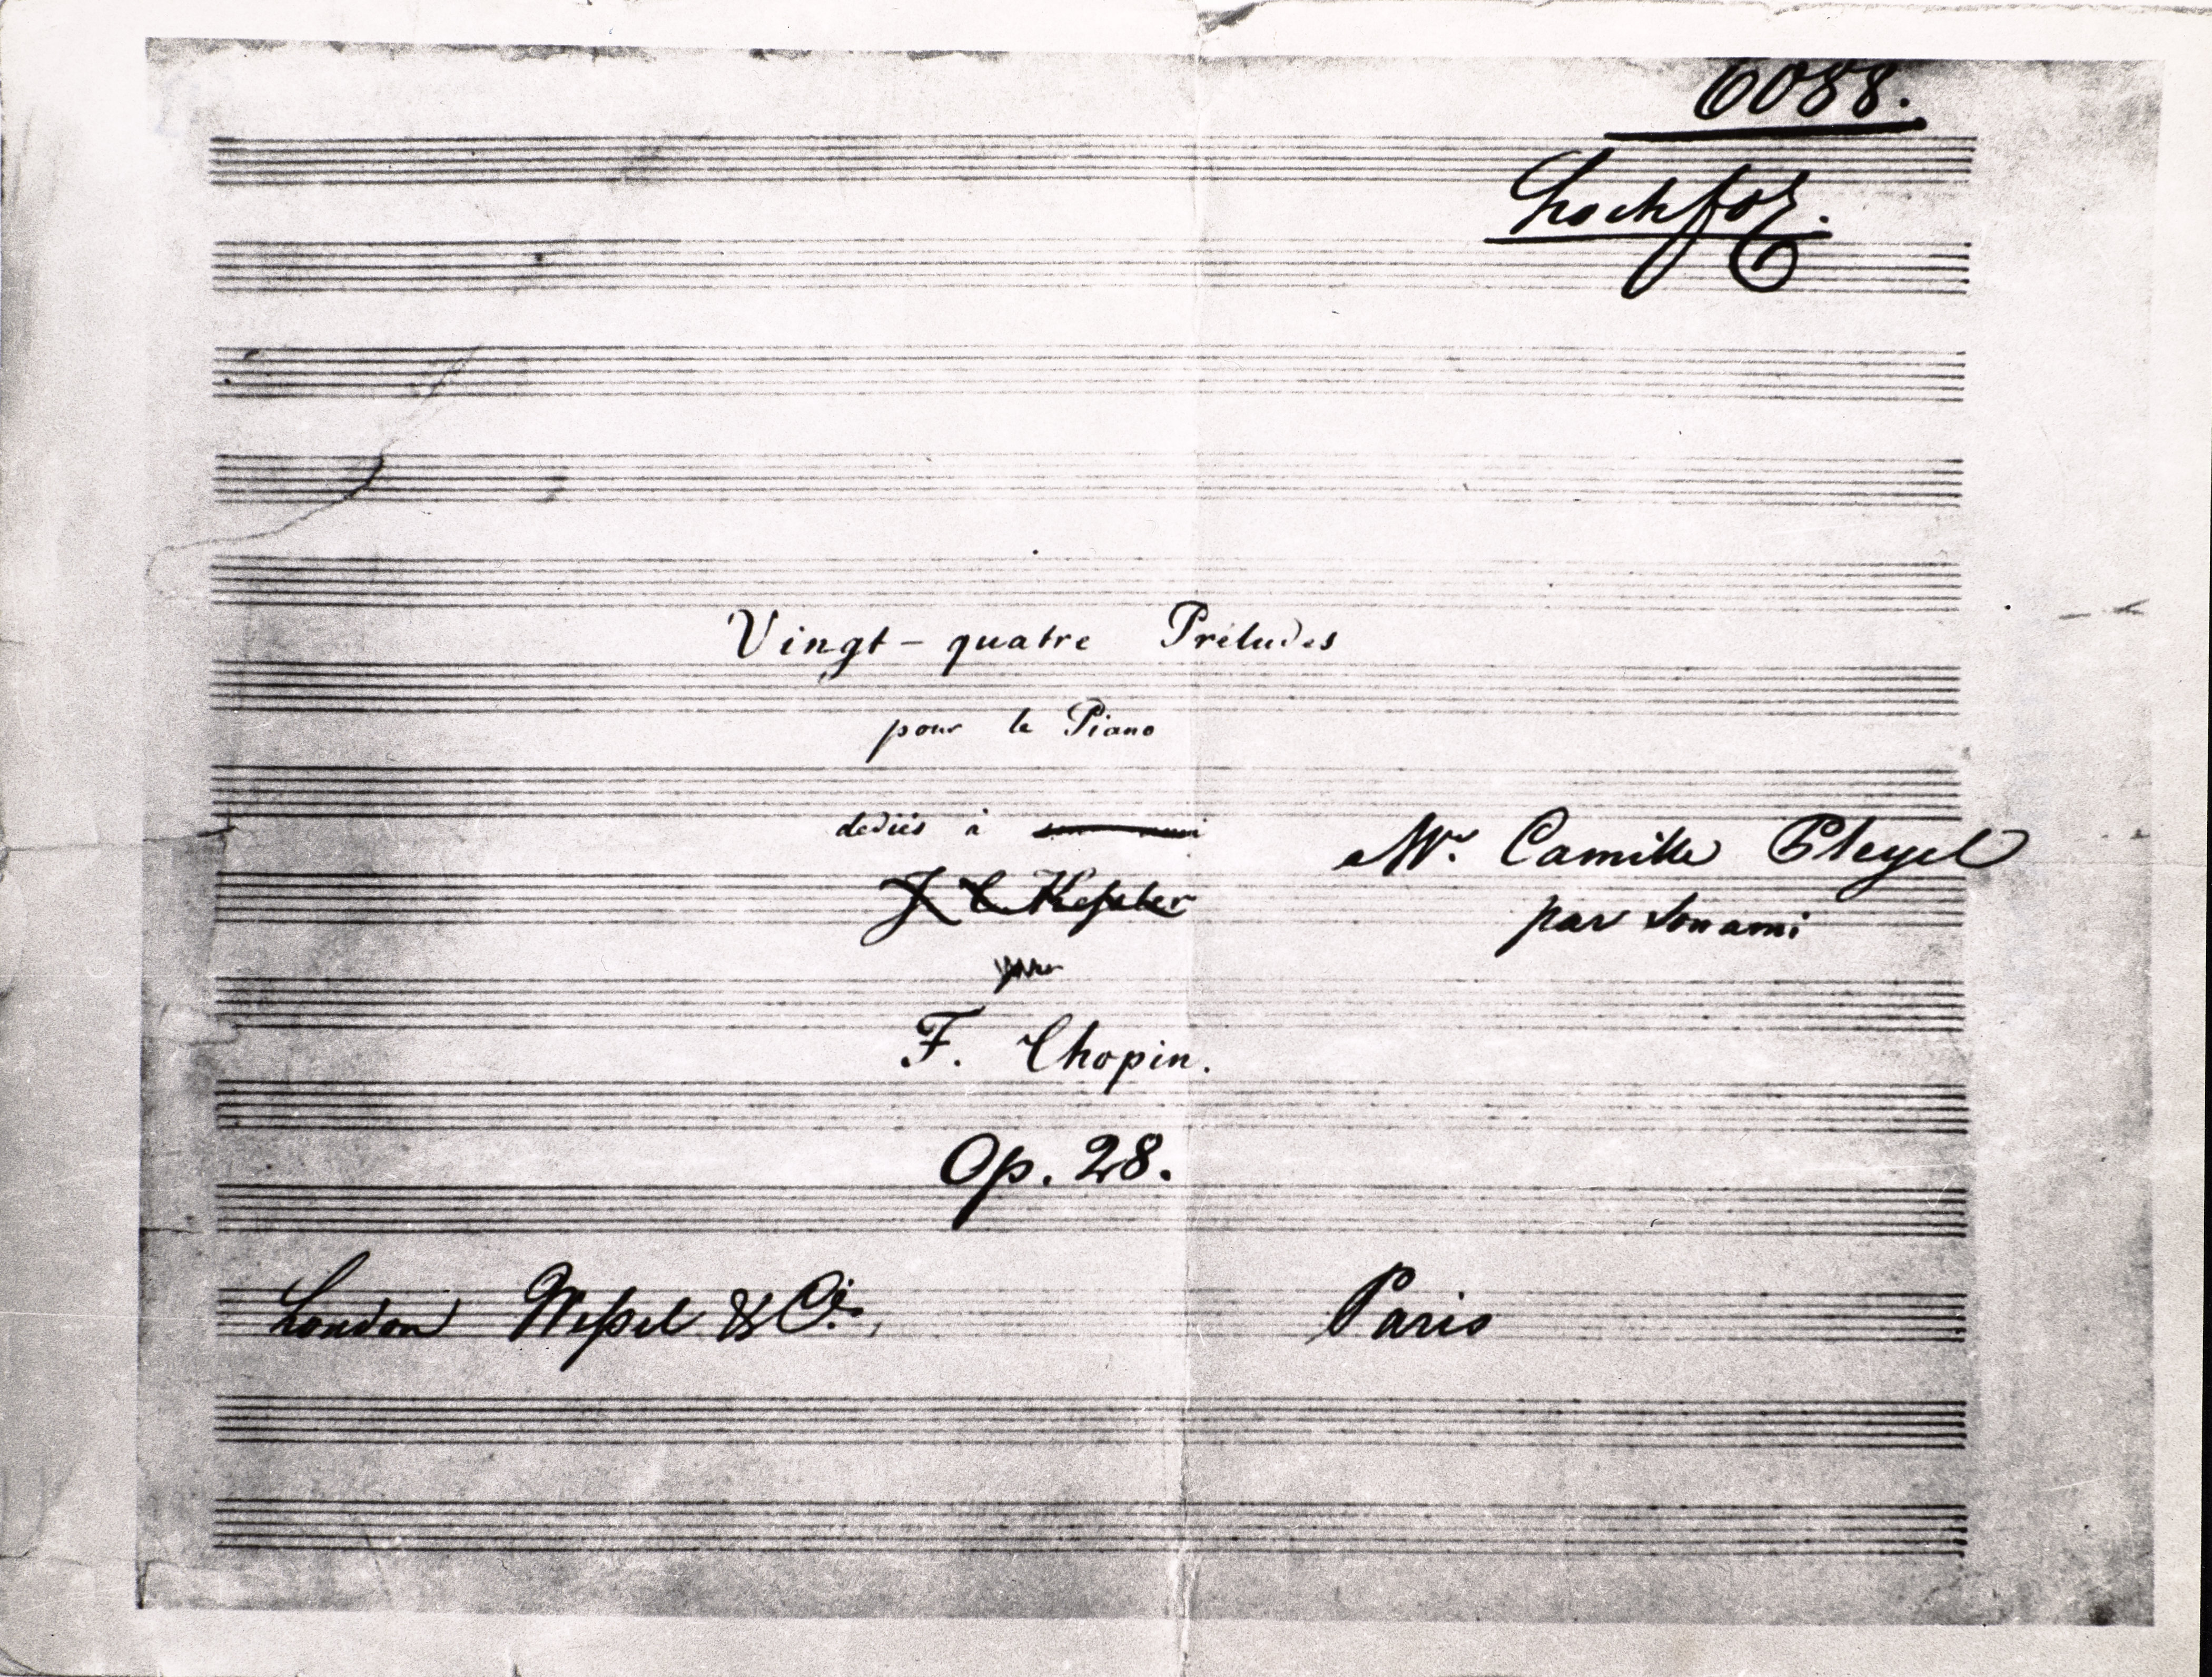 6088.
Hochfol.
Vingt-quatre Préludes
pour le Piano
dediés à son ami Mr. Camille Pleyel
J C Kessler par son ami
par
F. Chopin.
Op. 28.
London Wessel & Co. Paris